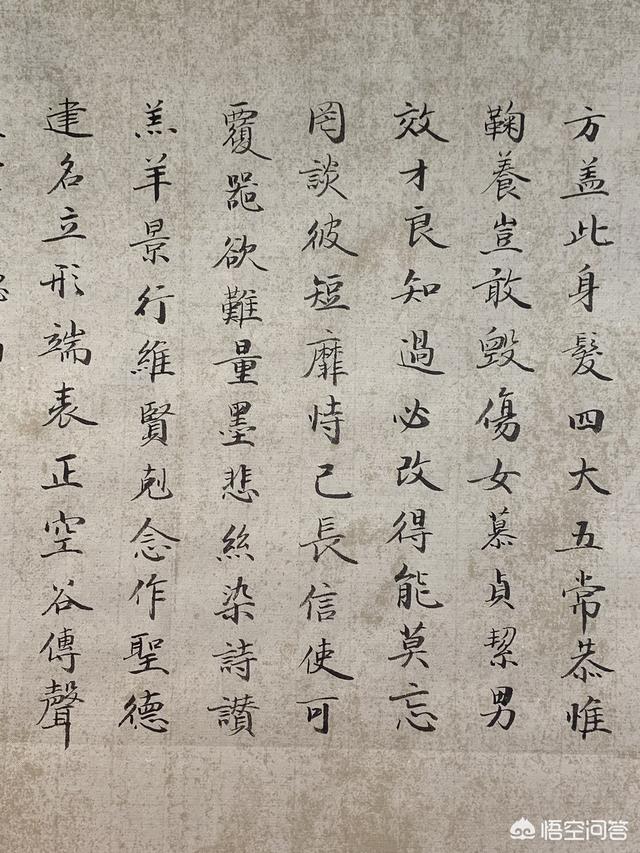 方盖此身髮四大五常恭惟
鞠養豈敢毀傷女慕貞絜男
效才良知過必改得能莫忘
罔談彼短靡恃己長信使可
覆器欲難量墨悲絲染詩讚
羔羊景行維賢剋念作聖德
建名立形端表正空谷傳聲
悟空问答